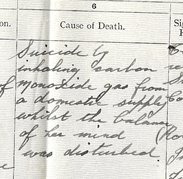 6
Cause of Death.
Suicide by
inhaling carbon
monoxide gas from
a domestic supply
whilst the balance
of her mind
was disturbed.